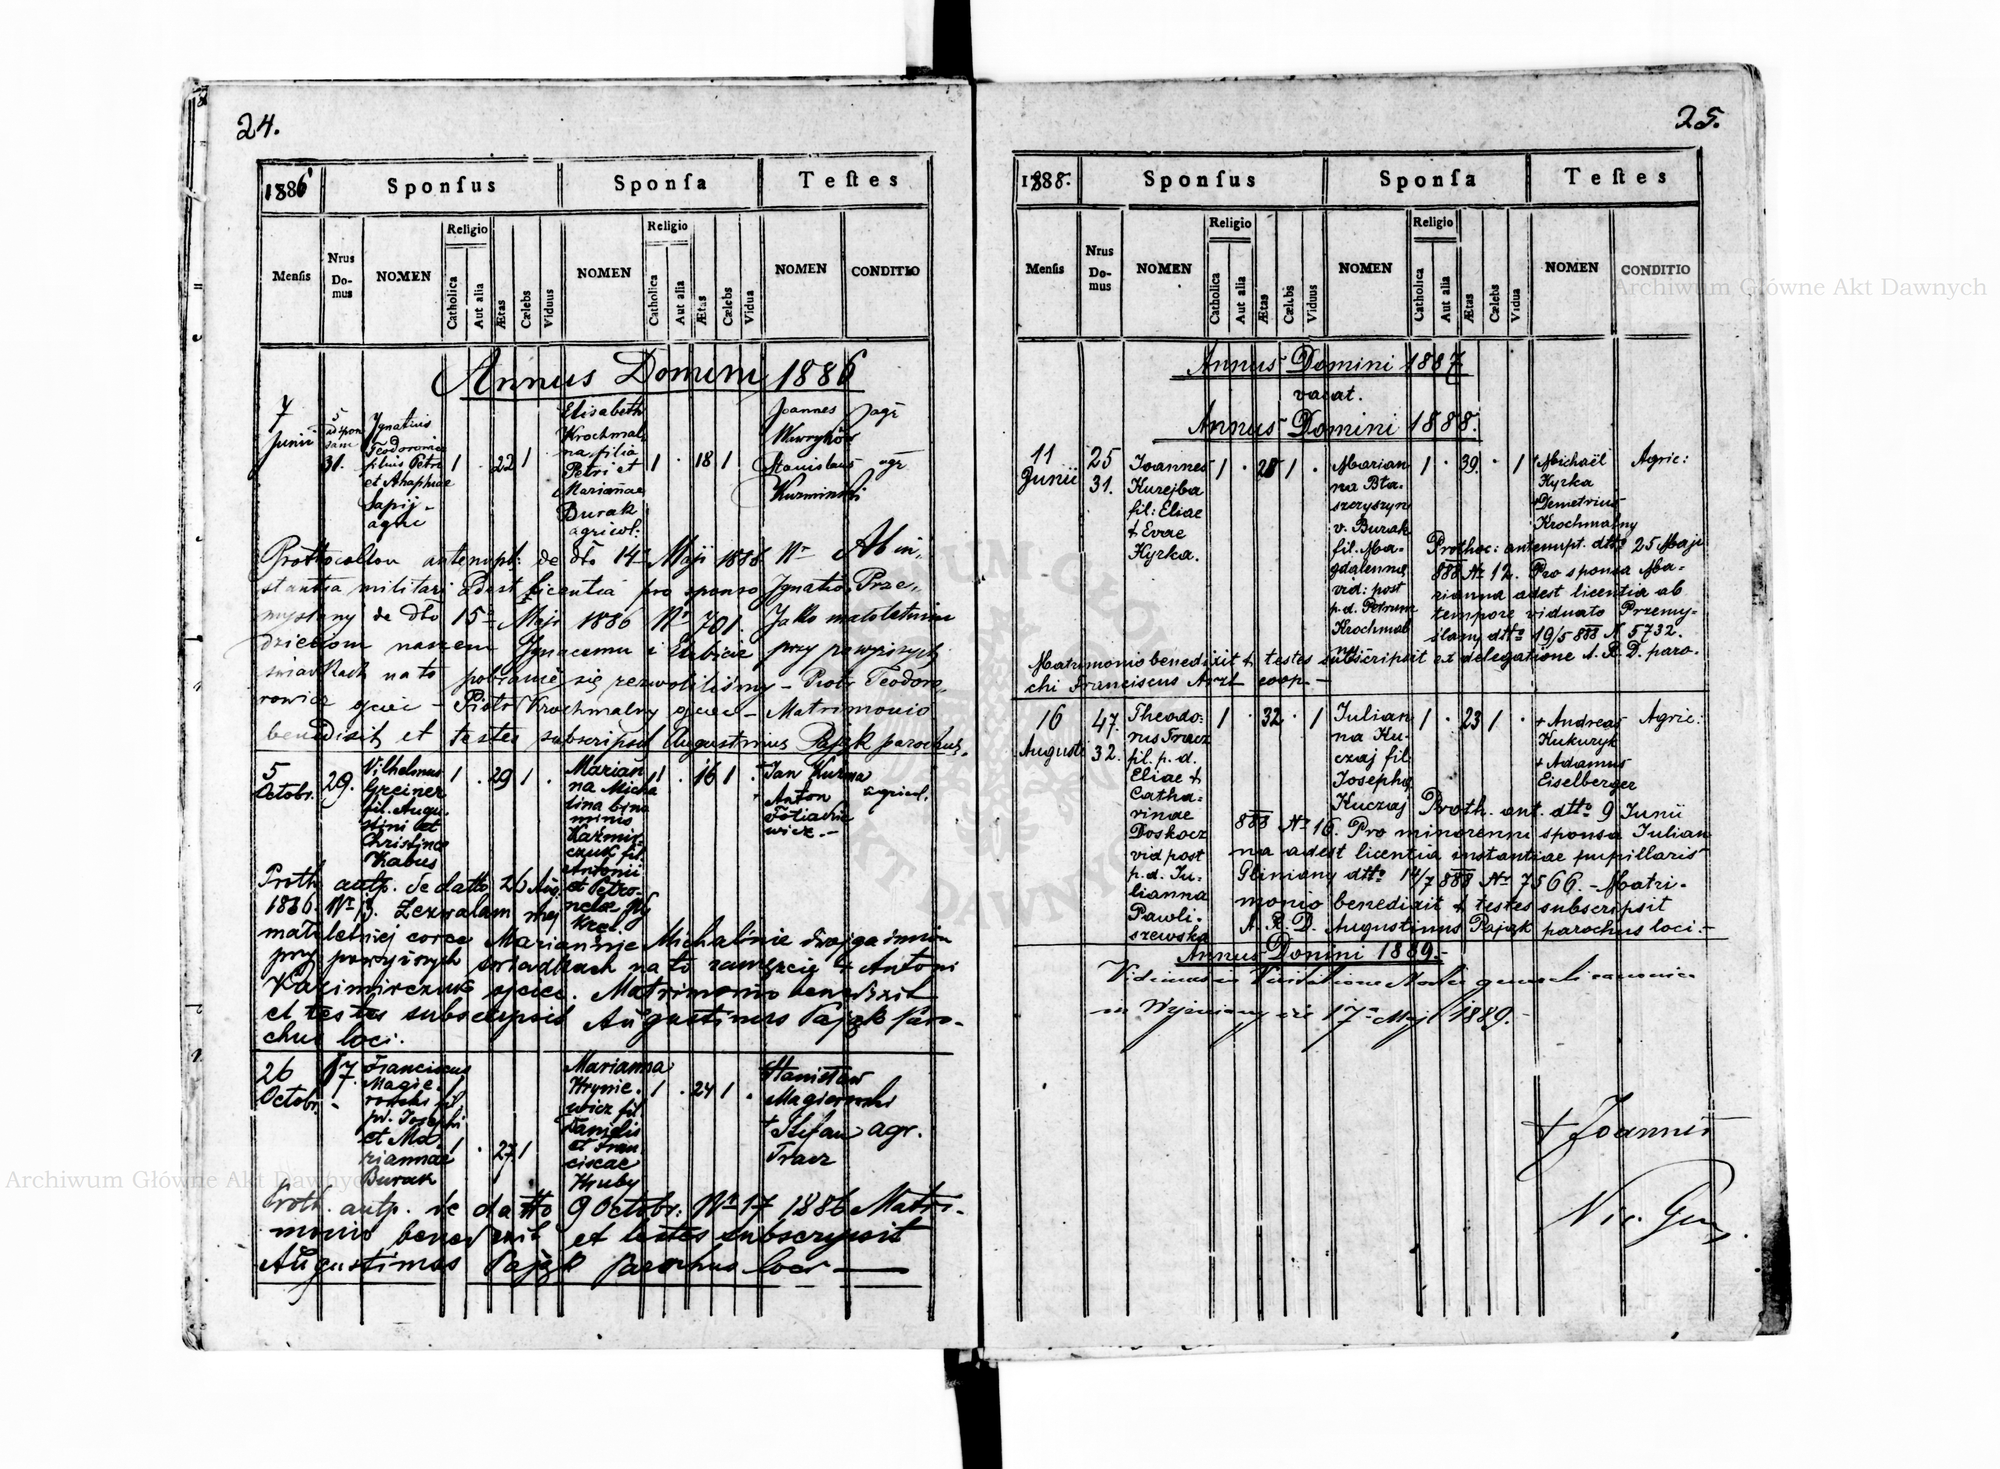 24.
1886
Sponſus
Sponſa
Teſtes
Menſis
Nrus Domus
NOMEN
Religio
Catholica
Aut alia
Ætas
Cælebs
Viduus
NOMEN
Religio
Catholica
Aut alia
Ætas
Cælebs
Vidua
NOMEN
CONDITIO
Annus Domini 1886
7
Junii
5
31.
Ignatius
filius Petri
et
agric
1 . 22 1
Elisabeth
Krochmal
na filia
Petri et
Mariannae
Burak
agricol:
1 . 18 1
Joannes agr
Stanislaus agr
Kuzminski
antenupt: de dto 14 Maji 1886 Nr Ab in
stantia militari licentia pro sponso Ignatio Prze
myslany de dto 15 Maji 1886 Nr 701. Jako małoletnim
dzieciom naszem Ignacemu i przy powyższych
świadkach na to pobranie się zezwoliliśmy – Piotr Teodoro
rowicz ojciec – Piotr Krochmalny ojciec – Matrimonio
benedixit et testes subscripsit Augustinus Pająk parochus.
5
Octobr.
29.
Vilhelmus
Greiner
fil. Augu
stini et
Christinae
Kabus
1 . 29 1 .
Marian
na Micha
lina bino
minis
Kazmir
czuk fil.
Antonii
et Petro
nelae
1 . 16 1 .
Jan Kuzma
agricol.
Anton
wicz.-
Proth. antp. de datto 26 Aug
1886 Nr 13. Zezwalam mej
małoletniej córce Mariannie Michalinie dwojga imion
przy powyższych świadkach na to zamęzcie + Antoni
Kazimirczuk ojciec. Matrimonio benedixit
et testes subscripsit Augustinus Pająk paro-
chus loci.
26
Octobr.
17.
Franciscus
Magie
rowski fil
pd. Josephi
et Ma
riannae
Burak
1 . 27 1
Marianna
Hrynie
wicz fil
Danielis
et Fran
ciscae
Hruby
1 . 24 1 .
Stanisław
Magierowski
+ Stefan agr.
Tracz
Proth. antp. de datto 9 Octobr: Nr 17 1886 Matri-
monio benedixit et testes subscripsit
Augustinus Pająk parochus loci
25.
1888.
Sponſus
Sponſa
Teſtes
Menſis
Nrus Domus
NOMEN
Religio
Catholica
Aut alia
Ætas
Cælebs
Viduus
NOMEN
Religio
Catholica
Aut alia
Ætas
Cælebs
Vidua
NOMEN
CONDITIO
Annus Domini 1887
vacat.
Annus Domini 1888.
11
Junii
25
31.
Joannes
Kurejba
fil: Eliae
+ Evae
Hyrka.
1 . 28 1 .
Marian
na Bła-
szczyszyn
v. Burak
fil. Ma-
gdalennae
vid: post
p.d. Petrum
Krochmal
1 . 39. . 1
Michaël
Hyrka
+ Demetrius
Krochmalny
Agric:
Prothoc: antenupt. dtto 25 Maji
888 Nr 12. Pro sponsa Ma-
rianna adest licentia ab
tempore viduato Przemy-
slany dtto 19/5 888 N 5732.
Matrimonio benedixit + testes subscripsit ex delegatione A. R. D. paro-
chi Franciscus Arzt coop –
16
Augusti
47.
32.
Theodo-
rus Tracz
fil. p. d.
Eliae +
Catha-
rinae
Doskocz
vid post
p.d. Ju-
lianna
Pawli-
szewska
1 . 32 . 1
Julian
na Ku-
czaj fil
Josephi
Kuczaj
1 . 23 1 .
+ Andreas
Kukuryk
+ Adamus
Eiselberger
Agric:
Proth. ant. dtto 9 Junii
888 Nr 16. Pro minorenni sponsa Julian
na adest licentia instantiae pupillaris
Gliniany dtto 14/7 888 Nr 7566. – Matri-
monio benedixit + testes subscripsit
A. R. D. Augustinus Pająk parochus loci.–
Annus Domini 1889.
in Visitatione canonica
in 17 Maji 1889.
+ Joannes
Archiwum Główne Akt Dawnych
Archiwum Główne Akt Dawnych